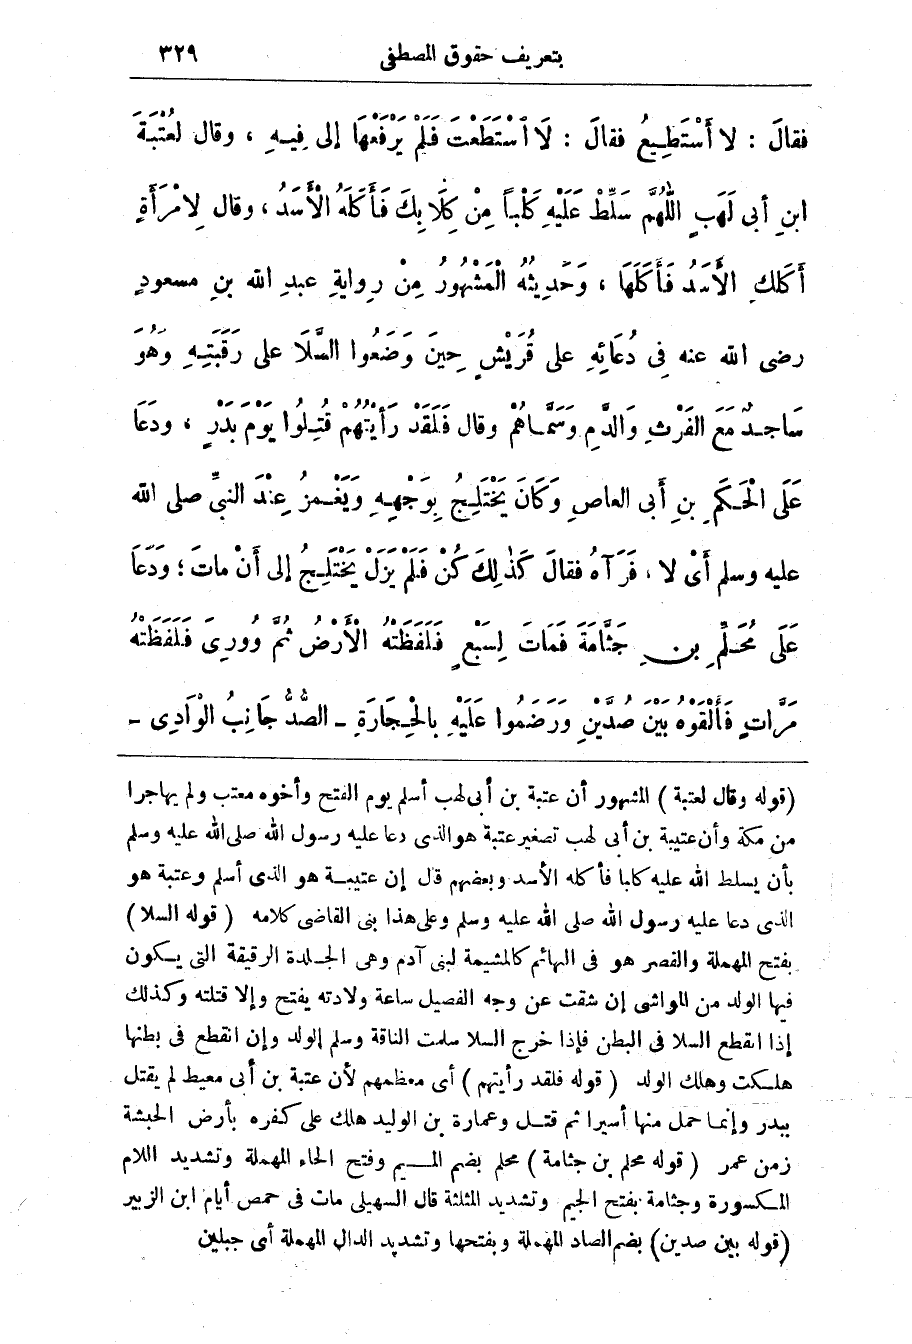 بتعريف حقوق المصطفى ٣٢٩
فقالَ : لا أَسْتَطِيعُ فقالَ : لَا ٱسْتَطَعْتَ فَلَمْ يَرْفَعْهَا إلى فِيهِ ، وقال لعُتْبَةَ
ابنِ أبى لَهَبٍ اللّٰهُمَّ سَلِّطْ عَلَيْهِ كَلْباً مِنْ كِلَابِكَ فَأَكَلَهُ الْأَسَدُ ، وقال لِامْرَأَةٍ
أَكَلَكِ الأَسَدُ فَأَكَلَهَا ، وَحَدِيثُهُ الْمَشْهُورُ مِنْ رِوايةِ عبدِ الله بنِ مسعودٍ
رضى الله عنه فِى دُعَائِهِ على قُرَيْشٍ حِينَ وَضَعُوا السَّلَا على رَقَبَتِهِ وَهُوَ
سَاجِدٌ مَعَ الفَرْثِ وَالدَّمِ وَسَمَّاهُمْ وقال فَلَقَدْ رَأَيْتُهُمْ قُتِلُوا يَوْمَ بَدْرٍ ، ودَعَا
عَلَى الْحَكَمِ بنِ أبى العاصِ وَكَانَ يَخْتَلِجُ بِوَجْهِهِ وَيَغْمِزُ عِنْدَ النبىِّ صلى الله
عليه وسلم أَىْ لا ، فَرَآهُ فقالَ كَذٰلِكَ كُنْ فَلَمْ يَزَلْ يَخْتَلِجُ إلى أَنْ ماتَ ؛ ودَعَا
عَلَى مُحَلِّمِ بنِ جَثَّامَةَ فَمَاتَ لِسَبْعٍ فَلَفَظَتْهُ الْأَرْضُ ثُمَّ وُورِىَ فَلَفَظَتْهُ
مَرَّاتٍ فَأَلْقَوْهُ بَيْنَ صُدَّيْنِ وَرَضَمُوا عَلَيْهِ بالْحِجَارَةِ ـ الصُّدُّ جَانِبُ الْوَادِى ـ
(قوله وقال لعتبة) المشهور أن عتبة بن أبى لهب أسلم يوم الفتح وأخوه معتب ولم يهاجرا
من مكة وأن عتيبة بن أبى لهب تصغير عتبة هو الذى دعا عليه رسول الله صلى الله عليه وسلم
بأن يسلط الله عليه كلبا فأكله الأسد وبعضهم قال إن عتيبة هو الذى أسلم وعتبة هو
الذى دعا عليه رسول الله صلى الله عليه وسلم وعلى هذا بنى القاضى كلامه (قوله السلا)
بفتح المهملة والقصر هو فى البهائم كالمشيمة لبنى آدم وهى الجلدة الرقيقة التى يكون
فيها الولد من المواشى إن شقت عن وجه الفصيل ساعة ولادته يفتح وإلا قتلته وكذلك
إذا انقطع السلا فى البطن فإذا خرج السلا سلمت الناقة وسلم الولد وإن انقطع فى بطنها
هلكت وهلك الولد (قوله فلقد رأيتهم) أى معظمهم لأن عتبة بن أبى معيط لم يقتل
ببدر وإنما حمل منها أسيرا ثم قتل وعمارة بن الوليد هلك على كفره بأرض الحبشة
زمن عمر (قوله محلم بن جثامة) محلم بضم الميم وفتح الحاء المهملة وتشديد اللام
المكسورة وجثامة بفتح الجيم وتشديد المثلثة قال السهيلى مات فى حمص أيام ابن الزبير
(قوله بين صدين) بضم الصاد المهملة وبفتحها وتشديد الدال المهملة أى جبلين